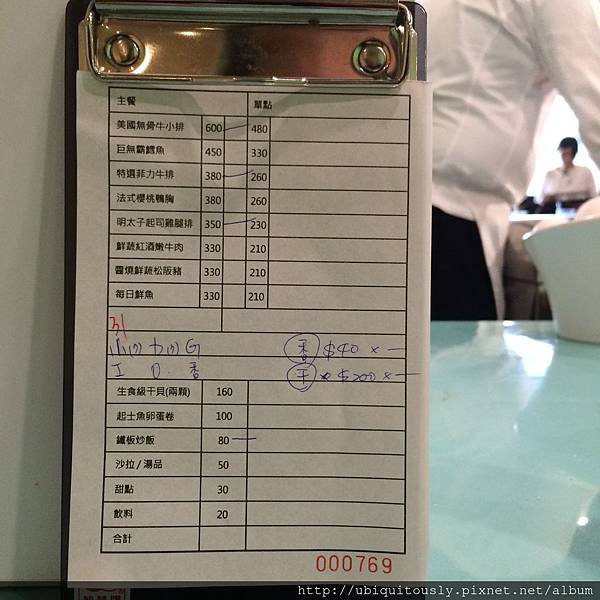 主餐 單點
美國無骨牛小排 600 480
巨無霸鱈魚 450 330
特選菲力牛排 380 260
法式櫻桃鴨胸 380 260
明太子起司雞腿排 350 230
鮮蔬紅酒嫩牛肉 330 210
醬燒鮮蔬松阪豬 330 210
每日鮮魚 330 210
香 $40 x 一
干 $200 x 一
生食級干貝(兩顆) 160
起士魚卵蛋卷 100
鐵板炒飯 80
沙拉/湯品 50
甜點 30
飲料 20
合計
000769
http://ubiquitously.pixnet.net/album